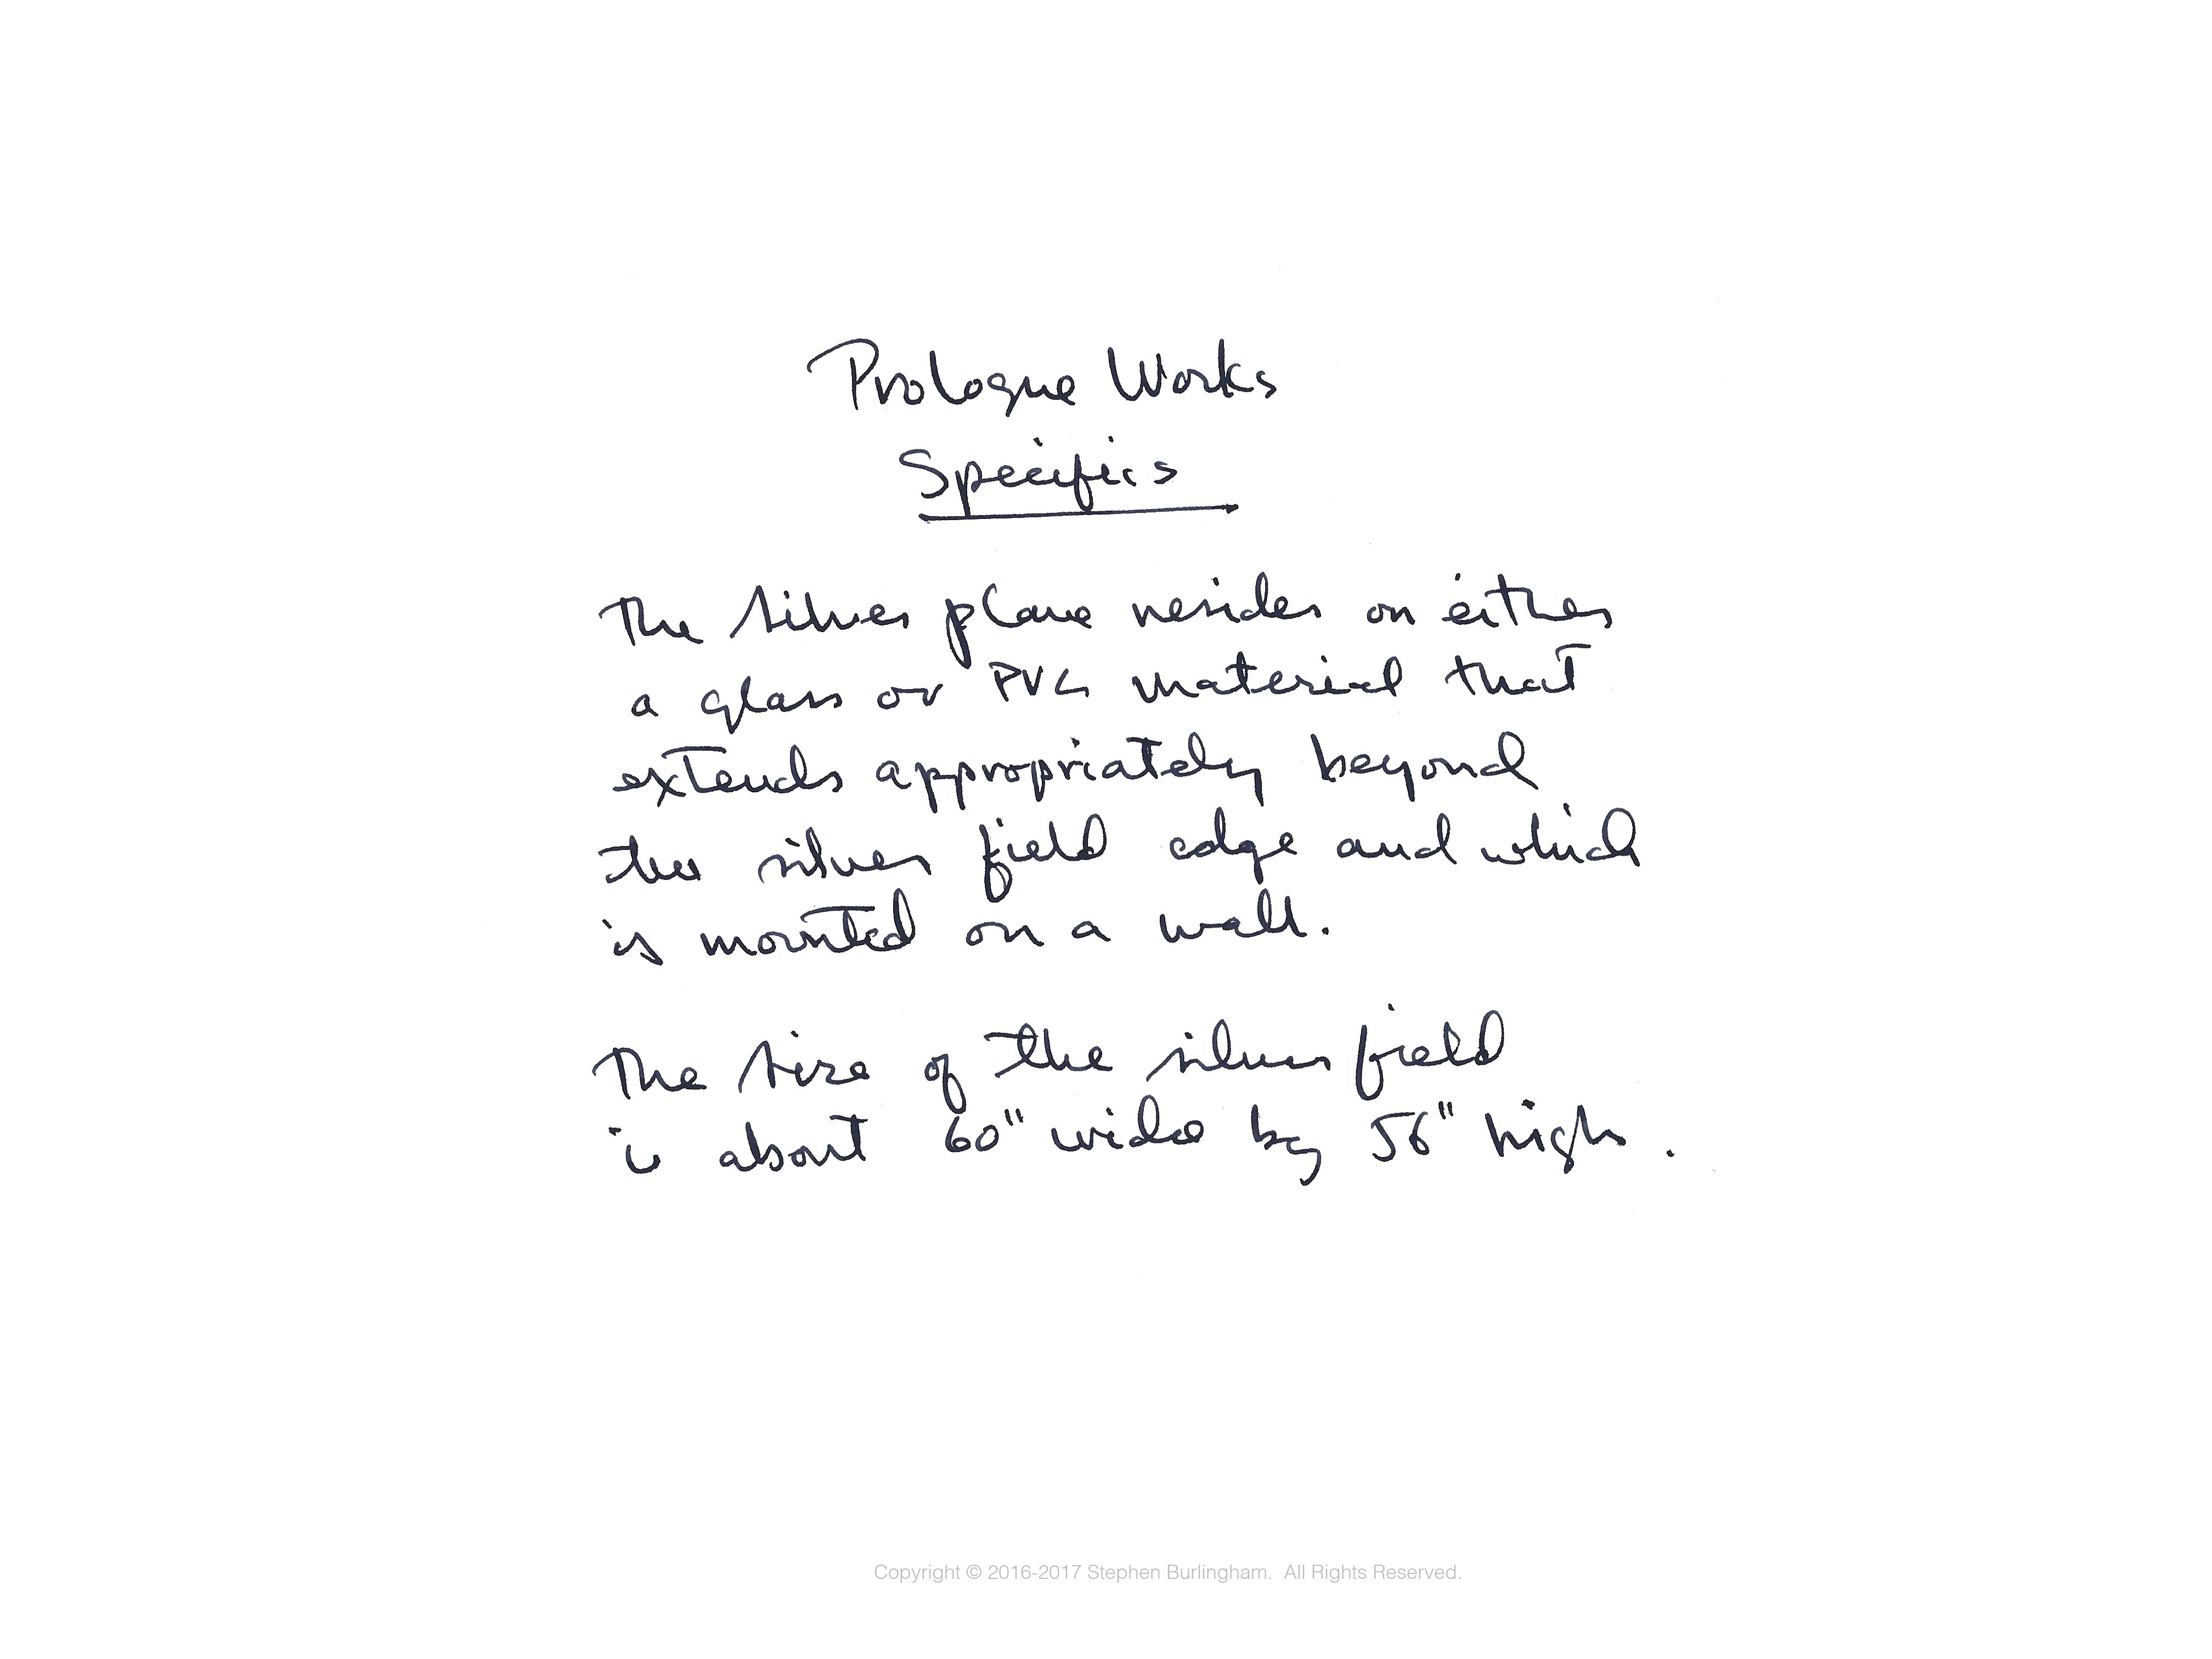 Prologue Works
Specifics
The silver plane resides on either
a glass or PVC material that
extends appropriately beyond
the silver field edge and which
is mounted on a wall.
The size of the silver field
is about 60" wide by 56" high.
Copyright © 2016-2017 Stephen Burlingham. All Rights Reserved.